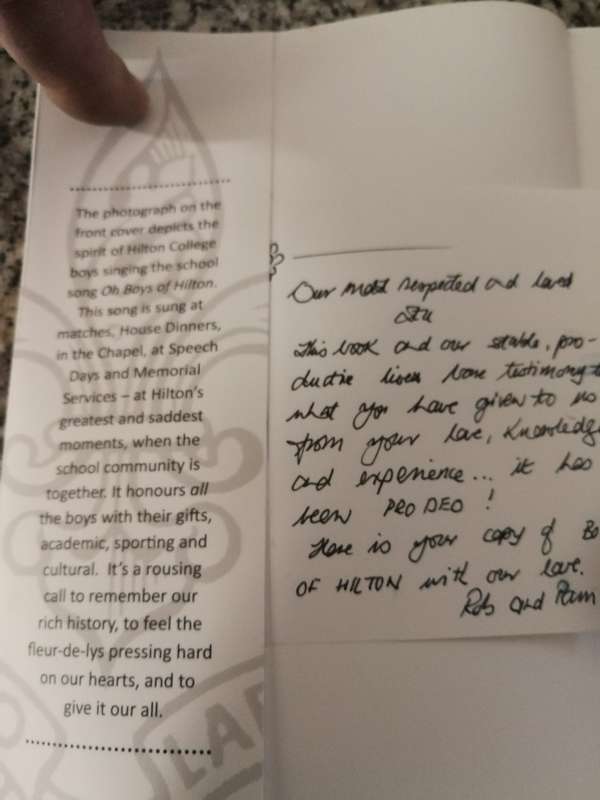 The photograph on the
front cover depicts the
spirit of Hilton College
boys singing the school
song Oh Boys of Hilton.
This song is sung at
matches, House Dinners,
in the Chapel, at Speech
Days and Memorial
Services – at Hilton's
greatest and saddest
moments, when the
school community is
together. It honours all
the boys with their gifts,
academic, sporting and
cultural. It's a rousing
call to remember our
rich history, to feel the
fleur-de-lys pressing hard
on our hearts, and to
give it our all.
LAP
Our most respected and loved
Stu
This book and our stable, pro-
ductive lives bare testimony to
what you have given to us
from your love, knowledge
and experience... it has
been PRO DEO!
Here is your copy of Bo
OF HILTON with our love.
Rob and Pam